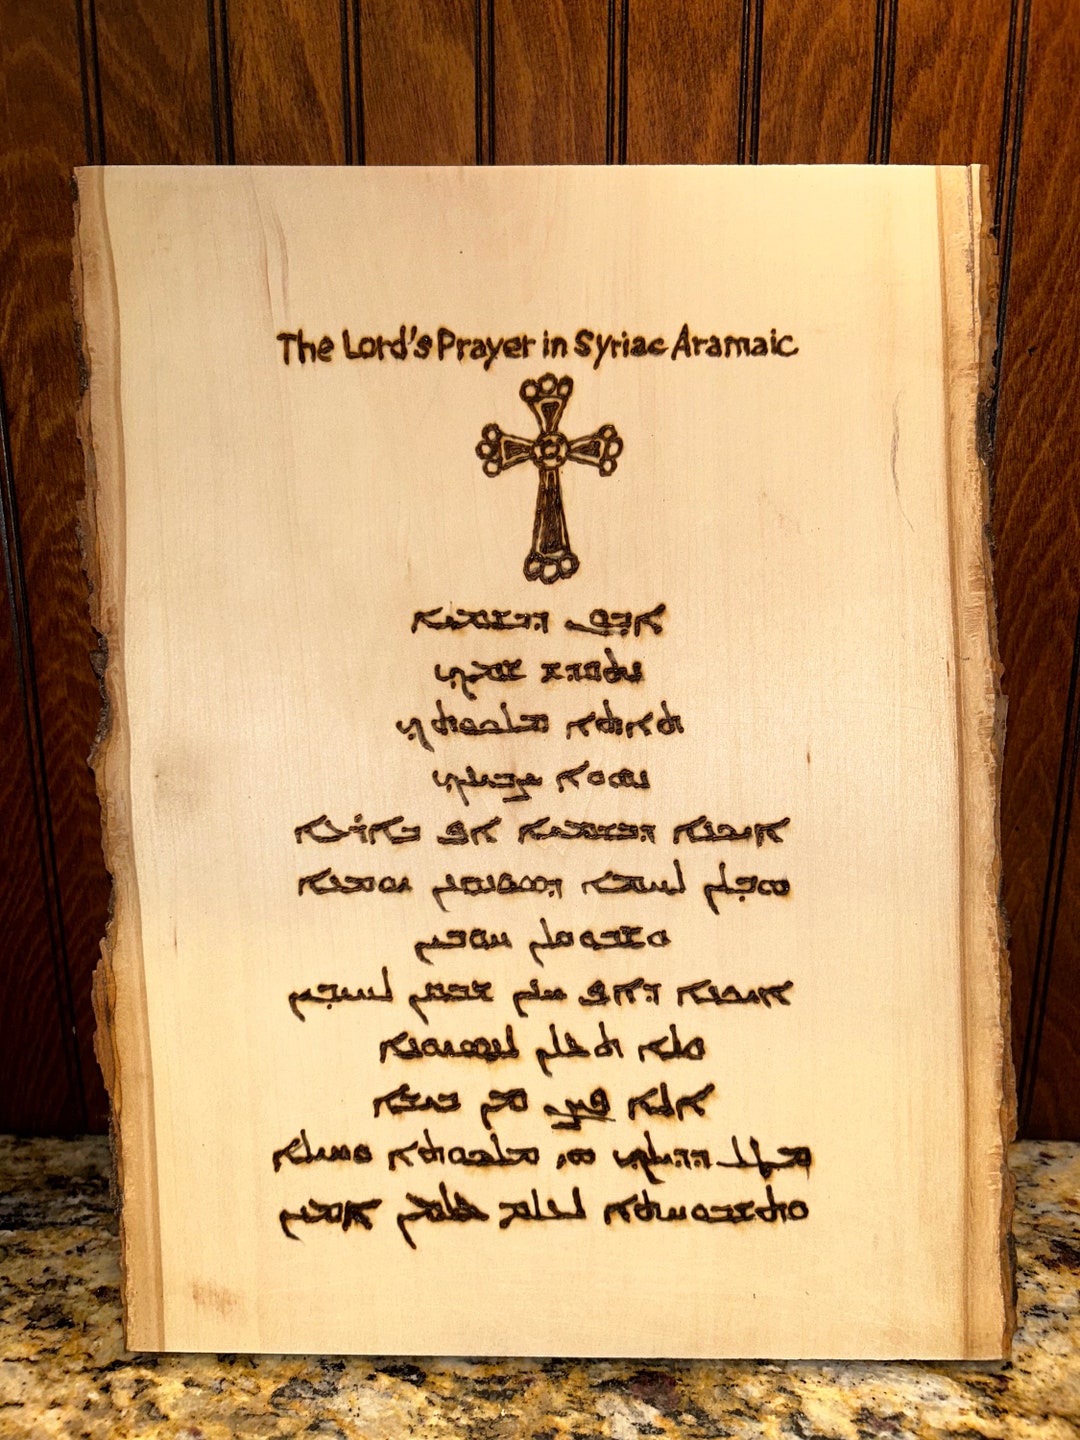 The Lord's Prayer in Syriac Aramaic
ܐܒܘܢ ܕܒܫܡܝܐ
ܢܬܩܕܫ ܫܡܟ
ܬܐܬܐ ܡܠܟܘܬܟ
ܢܗܘܐ ܨܒܝܢܟ
ܐܝܟܢܐ ܕܒܫܡܝܐ ܐܦ ܒܐܪܥܐ
ܗܒ ܠܢ ܠܚܡܐ ܕܣܘܢܩܢܢ ܝܘܡܢܐ
ܘܫܒܘܩ ܠܢ ܚܘܒܝܢ
ܐܝܟܢܐ ܕܐܦ ܚܢܢ ܫܒܩܢ ܠܚܝܒܝܢ
ܘܠܐ ܬܥܠܢ ܠܢܣܝܘܢܐ
ܐܠܐ ܦܨܢ ܡܢ ܒܝܫܐ
ܡܛܠ ܕܕܝܠܟ ܗܝ ܡܠܟܘܬܐ ܘܚܝܠܐ
ܘܬܫܒܘܚܬܐ ܠܥܠܡ ܥܠܡܝܢ ܐܡܝܢ